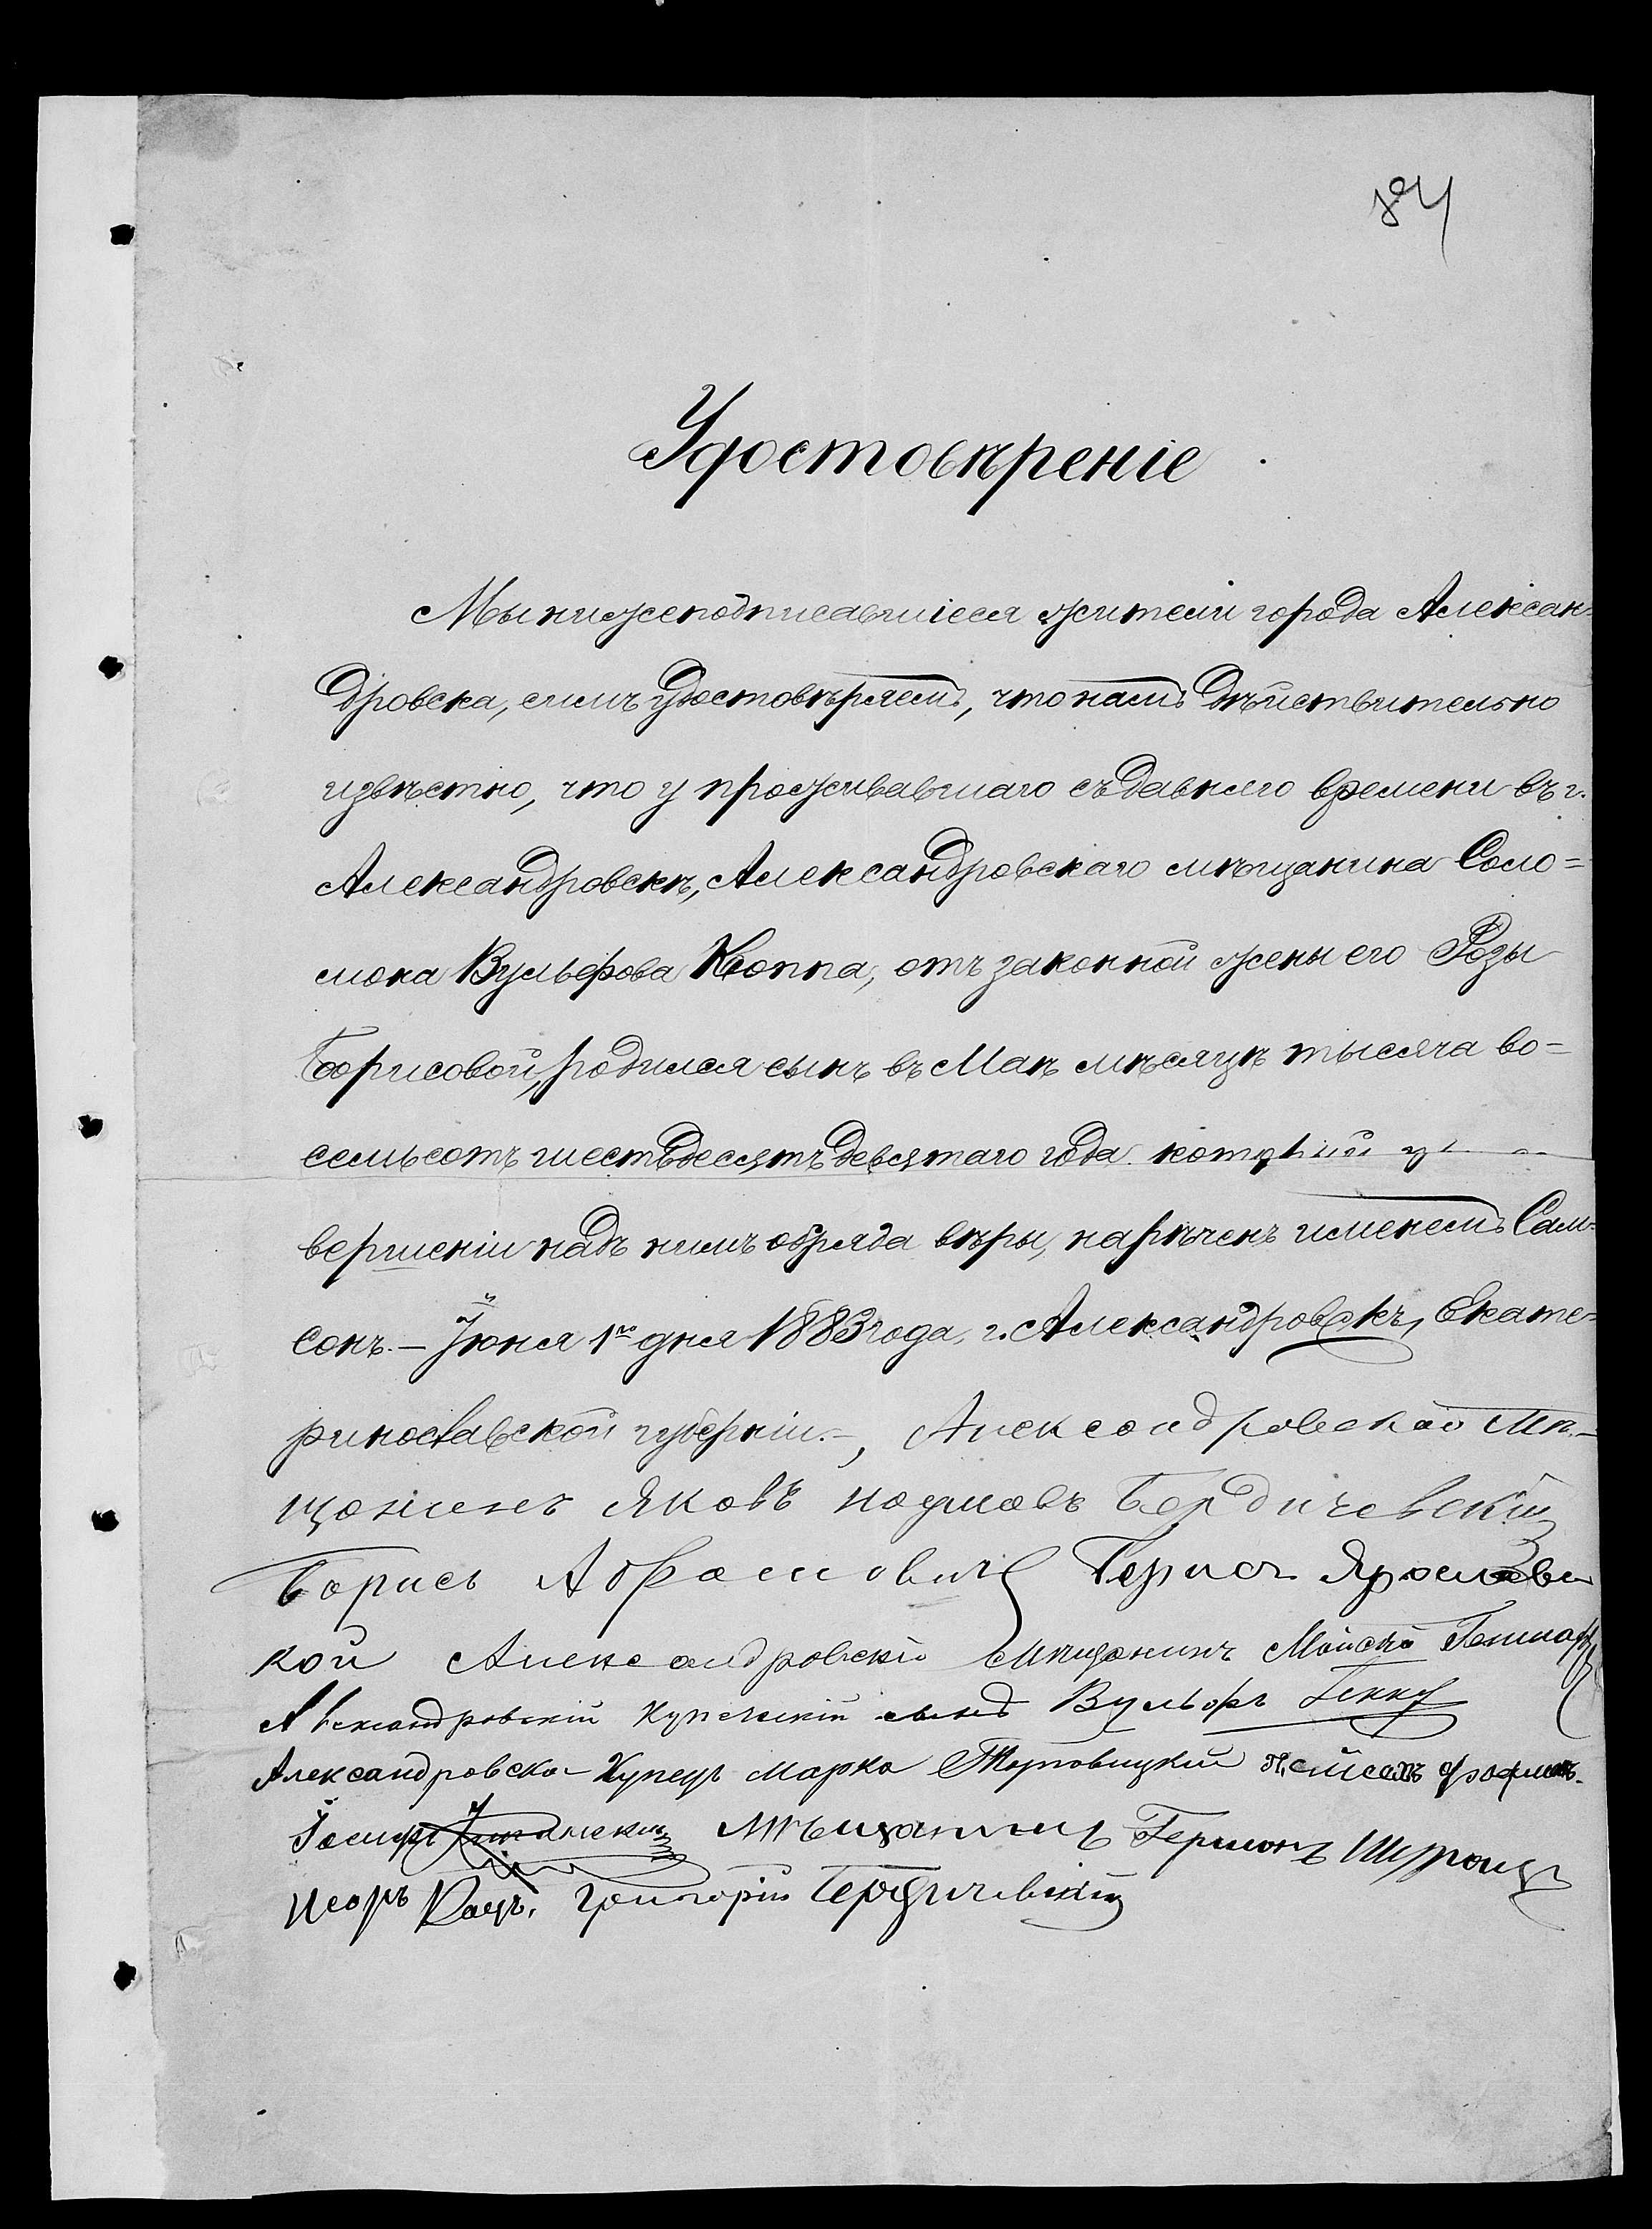 84
Удостовѣреніе
Мы нижеподписавшіеся жители города Алексан-
дровска, симъ удостовѣряемъ, что намъ дѣйствительно
извѣстно, что у проживавшаго съ давняго времени въ г.
Александровскѣ, Александровскаго мѣщанина Соло=
мона Вульфова Коппа, отъ законной жены его Розы
Борисовой, родился сынъ въ Маѣ мѣсяцѣ тысяча во=
семьсотъ шестьдесятъ девятаго года который
вершеніи надъ нимъ обряда вѣры, нарѣченъ именемъ Сам-
сонъ. – Іюня 1го дня 1883 года, г. Александровскъ, Екате-
ринославской губерніи. –, Александровской мѣ-
щанинъ Яковъ Бердичевскій
Борисъ Абрамовичъ Ярославс
кой Александровскій мѣщанинъ Мойсей
Александровскій Купеческій сынъ Вульфъ
Александровскій Купецъ Марко
Іосифъ Мѣщанинъ Германъ
Кацъ. Григорій Бердичевскій